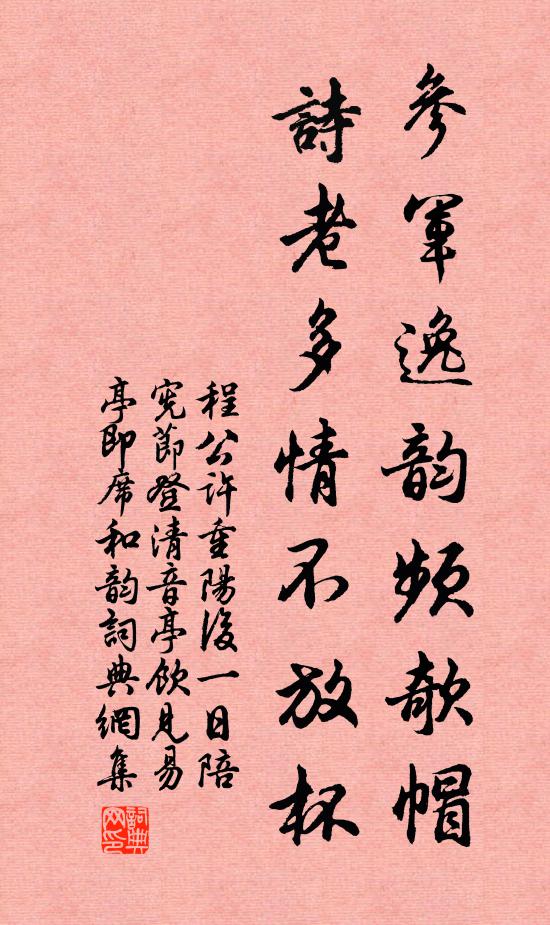 參軍逸韵頻欹帽
詩老多情不放杯
程公許重陽後一日陪
憲節登清音亭飲見易
亭即席和韵詞典網集
詞典网印